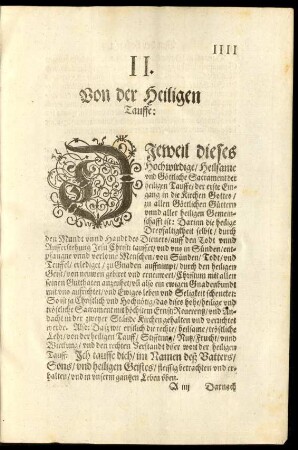 IIII
II.
Von der Heiligen
Tauffe:
DIeweil dieses
Hochwirdige, Heilsame
vnd Göttliche Sacrament der
heiligen Tauffe, der erste Ein-
gang in die Kirchen Gottes,
zu allen Göttlichen Gütern
vnnd aller heiligen Gemein-
schafft ist: Darin die heilige
Dreyfaltigkeit selbst, durch
den Mundt vnnd Handt des Dieners, auff den Todt vnnd
Aufferstehung Jesu Christi tauffet, vnd vns in Sünden, ent-
pfangene vnnd verlorne Menschen, von Sünden, Todt, vnd
Teuffel, erlediget, zu Gnaden auffnimpt, durch den heiligen
Geist, von newem gebiret vnd ernewert, Christum mit allen
seinen Gutthaten vnd also ein ewigen Gnadenbundt
mit vns auffrichtet, vnd Ewiges leben vnd Seligkeit schencket:
So ist es Christlich vnd Hochnötig, das diß hohe, heilige vnd
tröstliche Sacrament mit höchstem Ernst, Reuerentz, vnd An-
dacht in der zwayer Stände Kirchen gehalten vnd verrichtet
werde. Also, Daß wir erstlich die rechte, heilsame, tröstliche
Lehr, von der heiligen Tauff, Stifftung, Nutz, Frucht, vnnd
Wirckung, vnd den rechten Verstandt der wort der heiligen
Tauff: Ich tauffe dich, im Namen deß Vatters,
Sons, vnd heiligen Geistes, fleissig betrachten vnd er-
halten, vnd in vnserm gantzen Leben üben.
A iiij Darnach